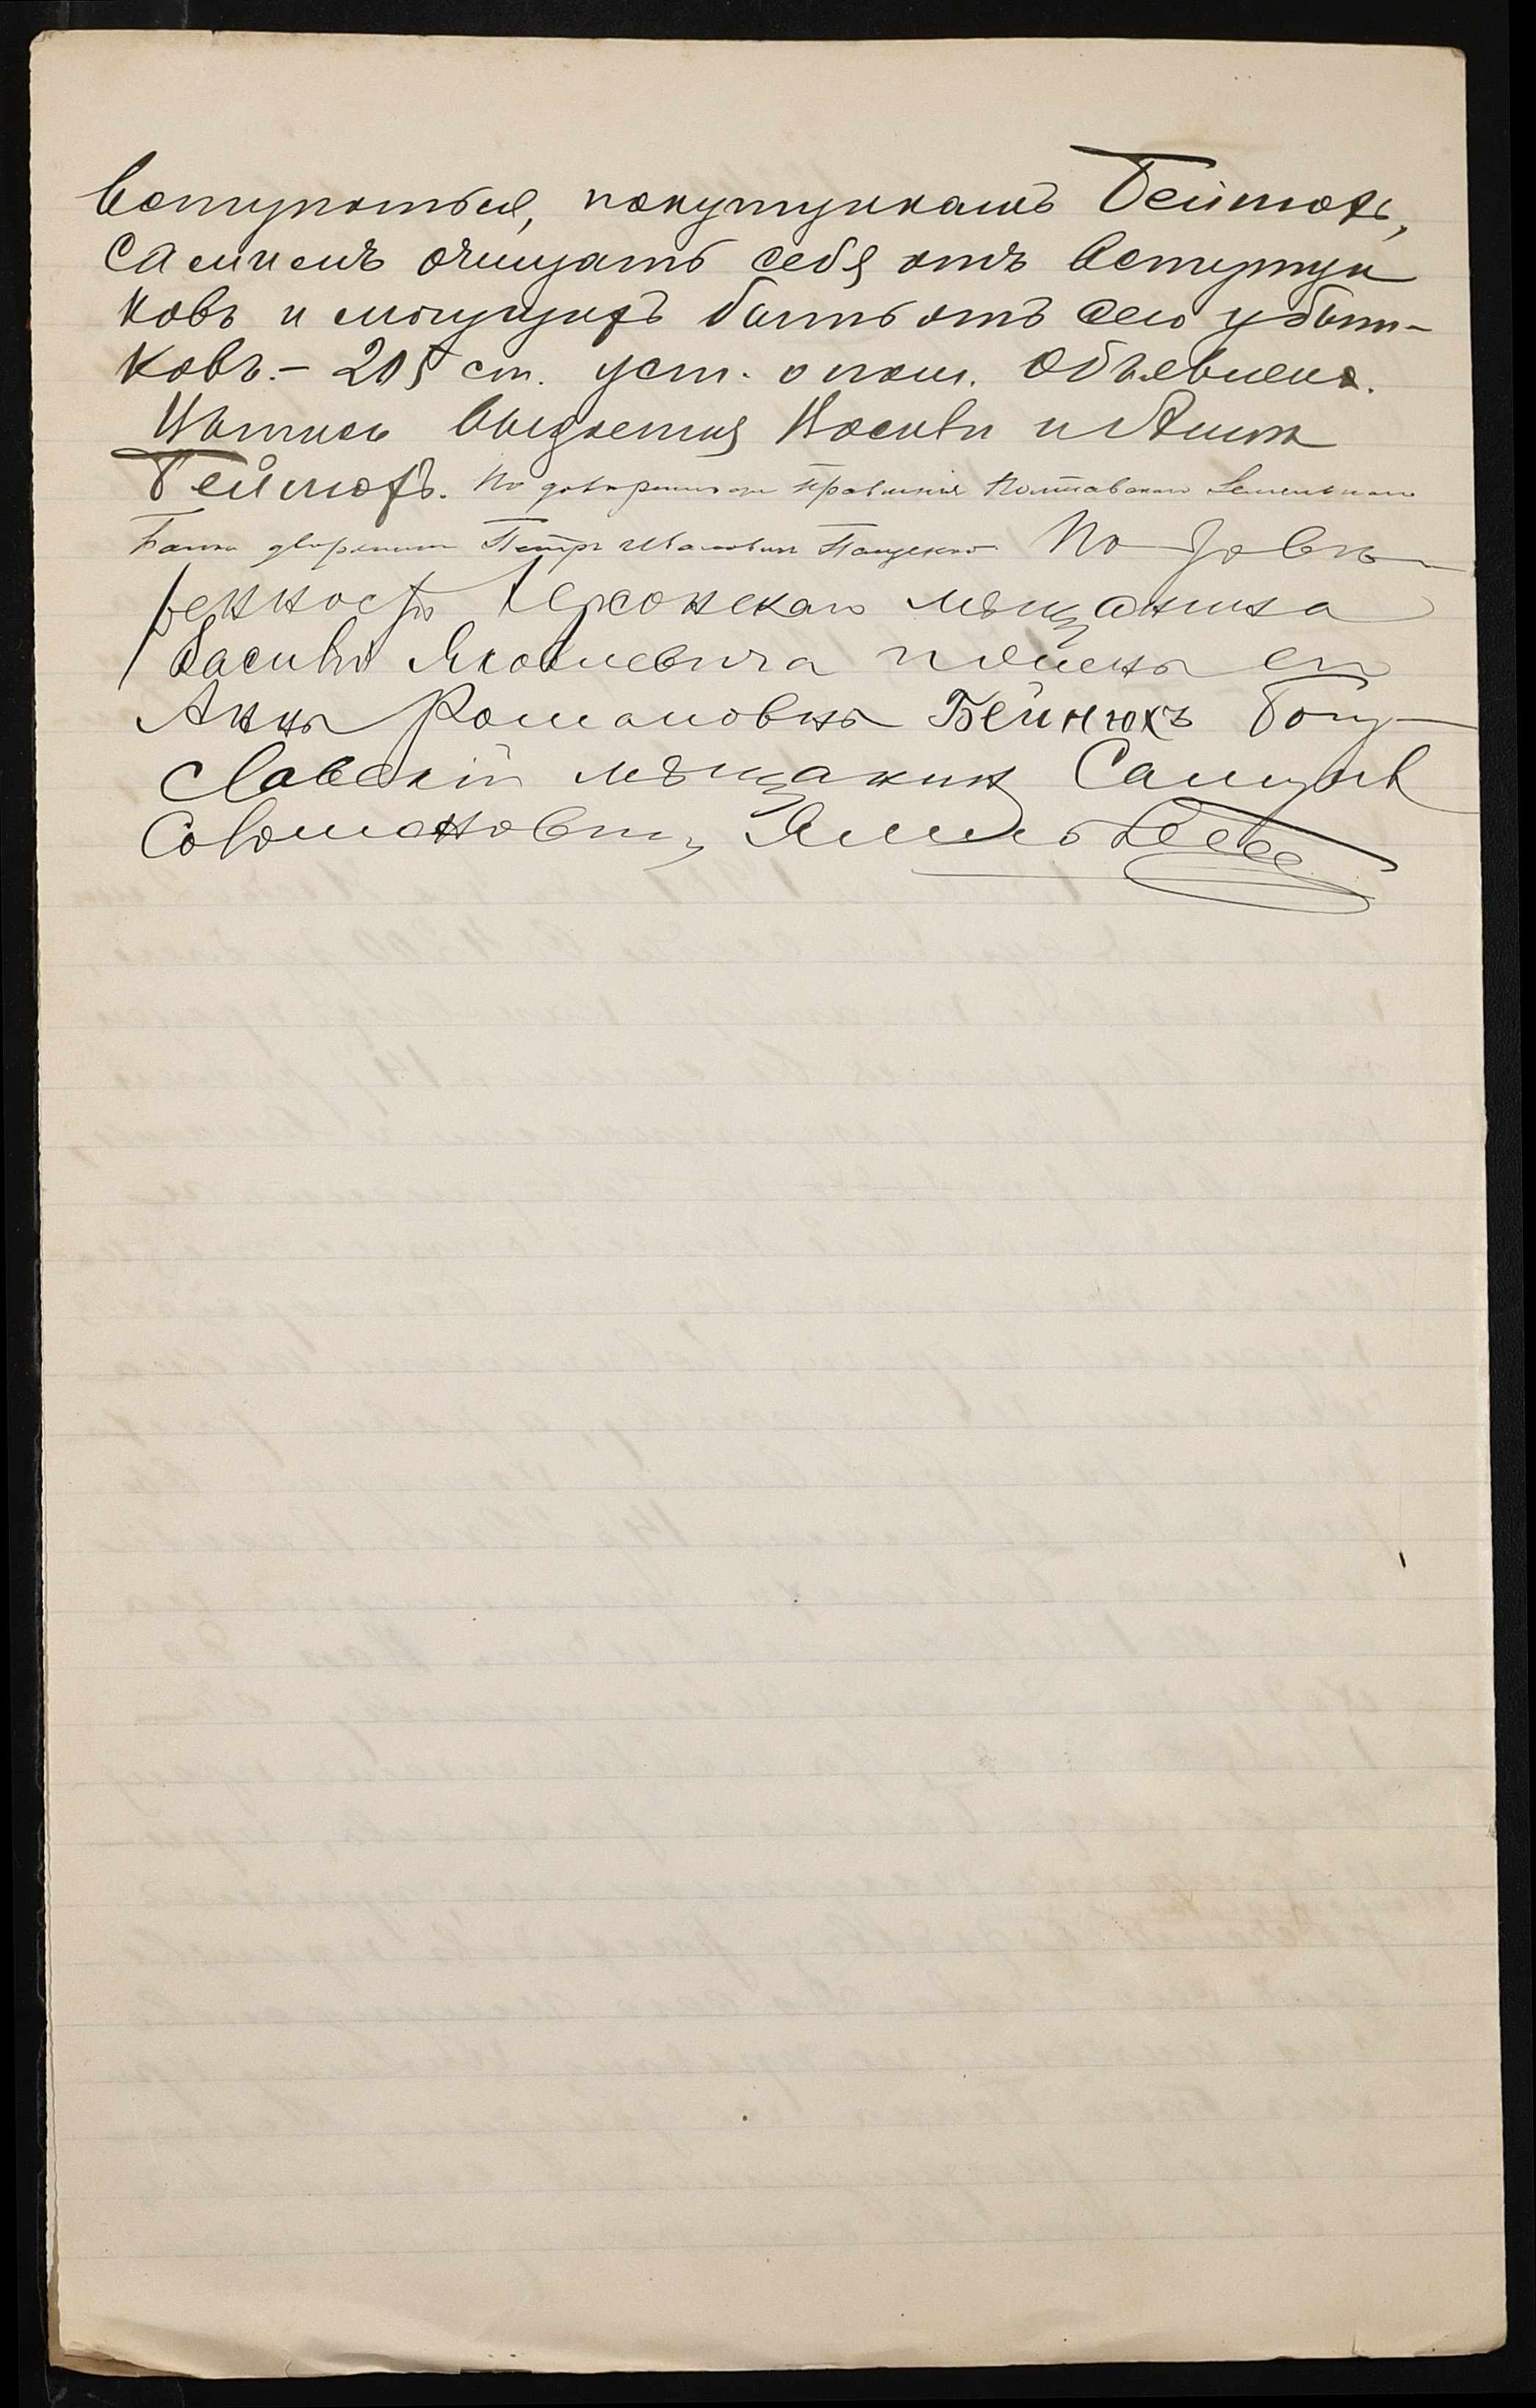 вступаться, покупщикамъ Бейнюхъ,
самимъ очищать себя отъ вступщи
ковъ и могущихъ быть отъ сего убыт-
ковъ.- 205 ст. уст. о пош. объявлена.
Выпись выдается Василію и Аннѣ
Бейнюхъ. По довѣренности Правленія Полтавскаго Земельнаго
Банка дворянинъ Петръ Ивановичъ По довѣ-
ренности Херсонскаго мѣщанина
Василія Яковлевича и жены его
Анны Романовны Бейнюхъ Богу-
славскій мѣщанинъ Самуилъ
Соломоновичъ